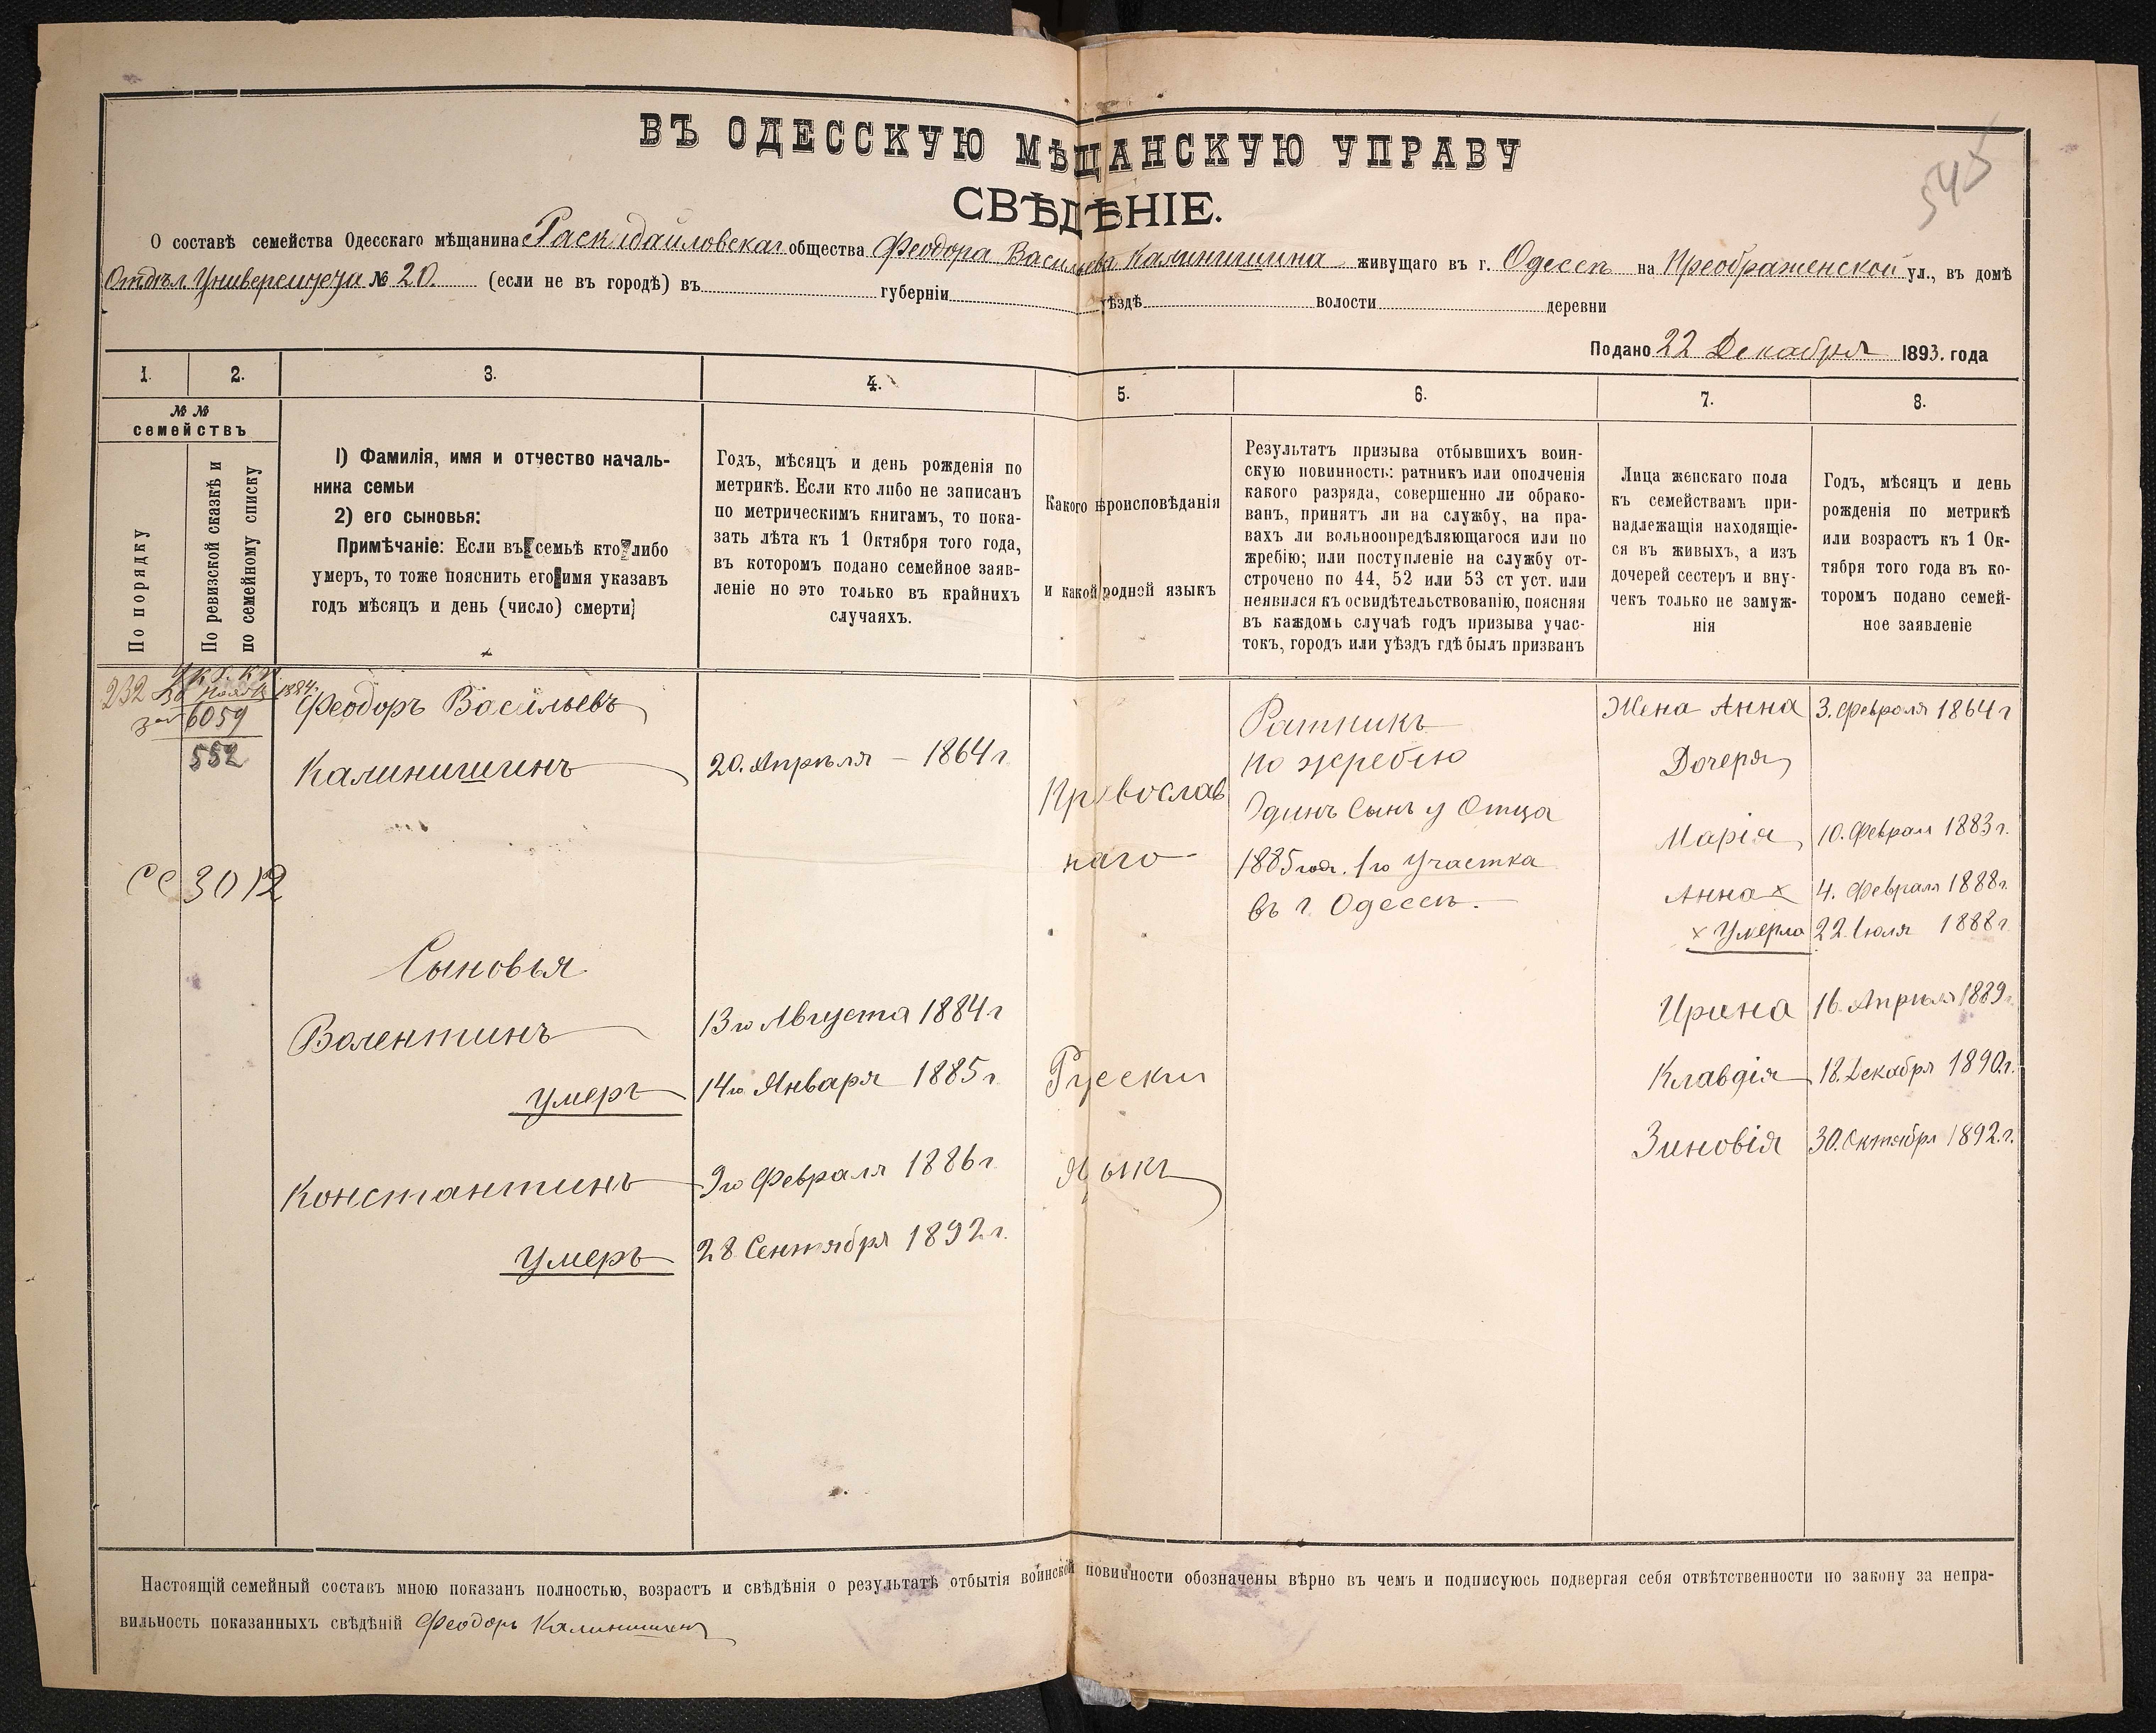 ВЪ ОДЕССКУЮ МѢЩАНСКУЮ УПРАВУ
СВѢДѢНІЕ.
545
О составѣ семейства Одесскаго мѣщанина Раскидайловскаг общества Феодора Васильева Калинишина живущаго въ г. Одессѣ на Преображенской ул., въ домѣ
Отдѣл Университета № 20. (если не въ городѣ) въ губерніи уѣздѣ волости деревни
Подано 22 Декабря 1893. года
1. 2. 3. 4. 5. 6. 7. 8.
№ №
семействъ
По порядку
По ревизской сказкѣ и
по семейному списку
1) Фамилія, имя и отчество началь-
ника семьи
2) его сыновья:
Примѣчаніе: Если въ семьѣ кто либо
умеръ, то тоже пояснить его имя указавъ
годъ мѣсяцъ и день (число) смерти
Годъ, мѣсяцъ и день рожденія по
метрикѣ. Если кто либо не записанъ
по метрическимъ книгамъ, то пока-
зать лѣта къ 1 Октября того года,
въ которомъ подано семейное заяв-
леніе но это только въ крайнихъ
случаяхъ.
Какого вѣроисповѣданія
и какой родной языкъ
Результатъ призыва отбывшихъ воин-
скую повинность: ратникъ или ополченія
какого разряда, совершенно ли обрако-
ванъ, принятъ ли на службу, на пра-
вахъ ли вольноопредѣляющагося или по
жребію; или поступленіе на службу от-
строчено по 44, 52 или 53 ст уст. или
неявился къ освидѣтельствованію, поясняя
въ каждомъ случаѣ годъ призыва учас-
токъ, городъ или уѣздъ гдѣ былъ призванъ
Лица женскаго пола
къ семействамъ при-
надлежащія находящіе-
ся въ живыхъ, а изъ
дочерей сестеръ и вну-
чекъ только не замуж-
нія
Годъ, мѣсяцъ и день
рожденія по метрикѣ
или возрастъ къ 1 Ок-
тября того года въ ко-
торомъ подано семей-
ное заявленіе
232
1884.
6059
552
СС 3012
Феодоръ Васильевъ
Калинишинъ
20. Апрѣля - 1864 г
Сыновья
Валентинъ 13го Августа 1884 г
умеръ 14го Января 1885 г
Константинъ 9го Февраля 1886 г
Умеръ 28 Сентября 1892 г.
Православ
наго
Русскій
Языкъ
Ратникъ
по жребію
Одинъ Сынъ у Отца
1885 года. 1го Участка
въ г Одессѣ.
Жена Анна 3. Февраля 1864 г
Дочеря
Марія 10. Феврал 1883 г.
Анна х 4. Февраля 1888 г.
х Умерла 22 Іюля 1888 г
Ирина 16. Апрѣля 1889 г.
Клавдія 18. Декабря 1890. г.
Зиновія 30. Октября 1892. г.
Настоящій семейный составъ мною показанъ полностью, возрастъ и свѣдѣнія о результатѣ отбытія воинской повинности обозначены вѣрно въ чемъ и подписуюсь подвергая себя отвѣтственности по закону за непра-
вильность показанныхъ свѣдѣній Феодоръ Калинишинъ